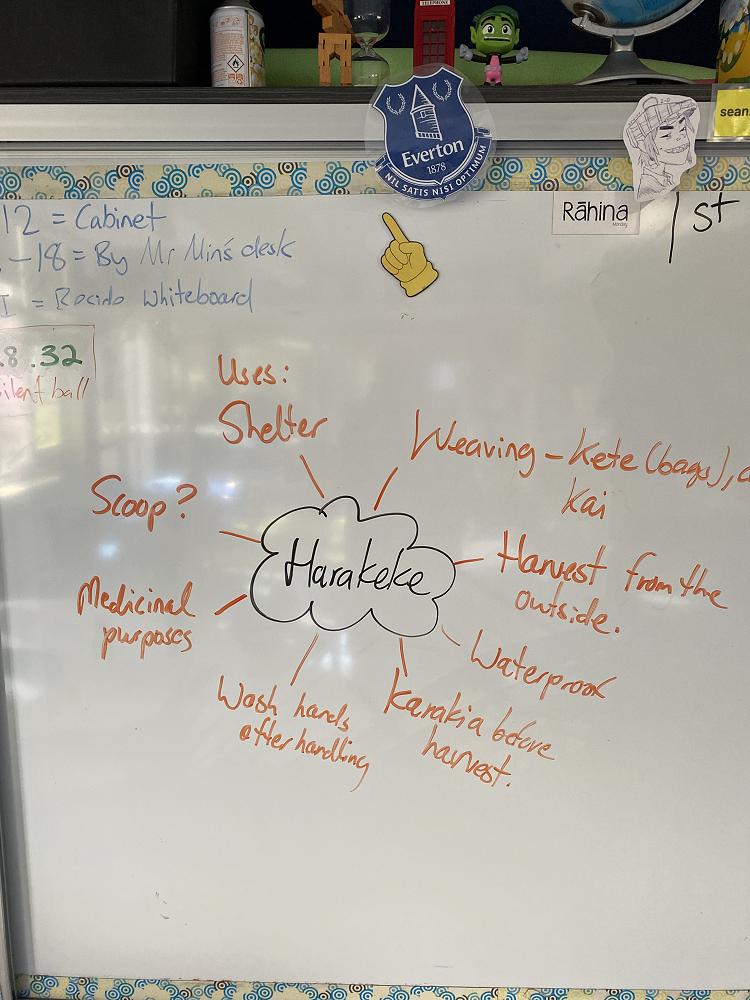 TELEPHONE
Everton
1878
NIL SATIS NISI OPTIMUM
sean
Rāhina
Monday
1st
12 = Cabinet
-18 = By Mr Min's desk
I = Beside whiteboard
8.32
silent ball
Uses:
Shelter
Weaving - Kete (bags),
Kai
Scoop?
Harakeke
Harvest from the
outside.
Medicinal
purposes
Waterproof
Wash hands
after handling
Karakia before
harvest.